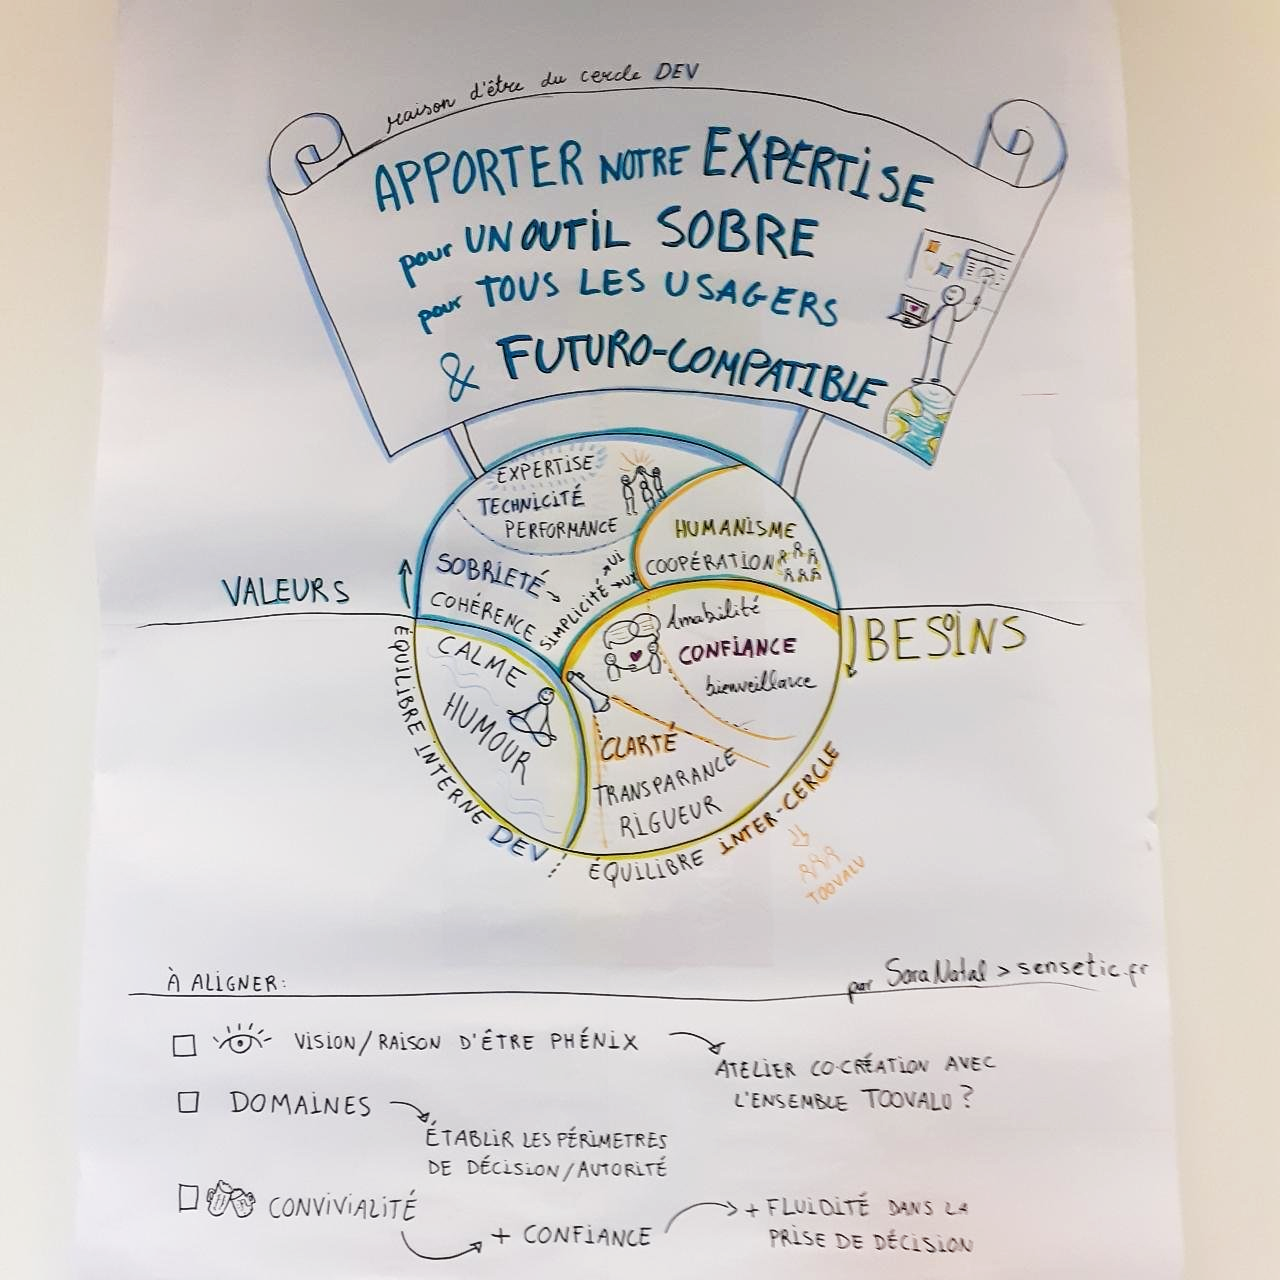 raison d'être du cercle DEV
APPORTER NOTRE EXPERTISE
pour UN OUTIL SOBRE
pour TOUS LES USAGERS
& FUTURO-COMPATIBLE
EXPERTISE
TECHNICITÉ
PERFORMANCE
HUMANISME
COOPÉRATION
SOBRIETÉ
COHÉRENCE
SIMPLICITÉ
UI
UX
VALEURS
BESOINS
Amabilité
CONFIANCE
bienveillance
CALME
HUMOUR
CLARTÉ
TRANSPARANCE
RIGUEUR
ÉQUILIBRE INTERNE DEV
ÉQUILIBRE INTER-CERCLE
TOOVALU
À ALIGNER:
par Sara Natal > sensetic.fr
VISION/RAISON D'ÊTRE PHÉNIX
ATELIER CO-CRÉATION AVEC
L'ENSEMBLE TOOVALU ?
DOMAINES
ÉTABLIR LES PÉRIMETRES
DE DÉCISION/AUTORITÉ
CONVIVIALITÉ
+ CONFIANCE
+ FLUIDITÉ DANS LA
PRISE DE DÉCISION